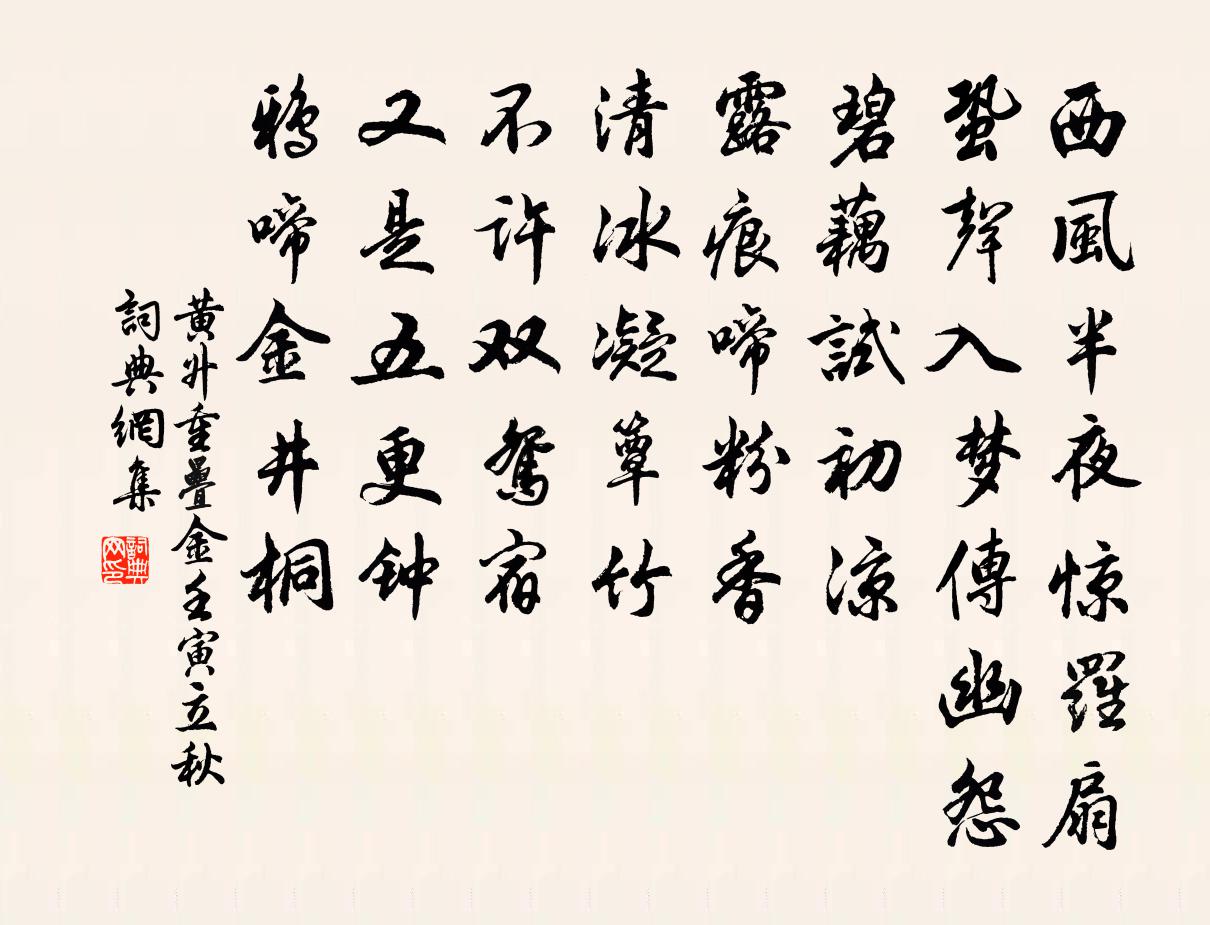 西風半夜惊羅扇
蛩聲入梦傳幽怨
碧藕試初涼
露痕啼粉香
清冰凝簟竹
不许双鸳宿
又是五更钟
鸦啼金井桐
黄升重疊金壬寅立秋
詞典網集
詞典网印